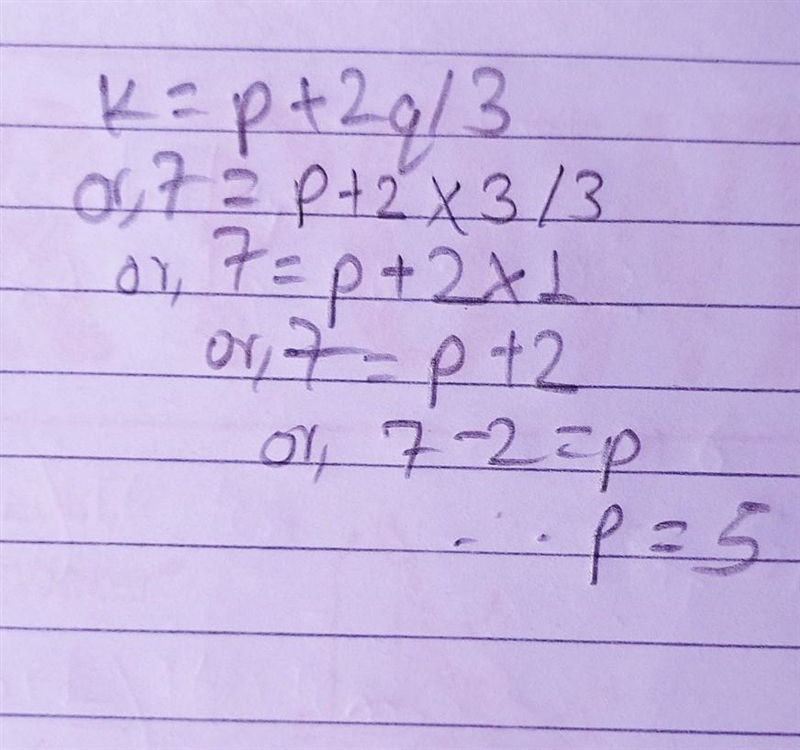 K = p + 2q/3
or, 7 = p + 2 × 3 / 3
or, 7 = p + 2 × 1
or, 7 = p + 2
or, 7 - 2 = p
∴ p = 5